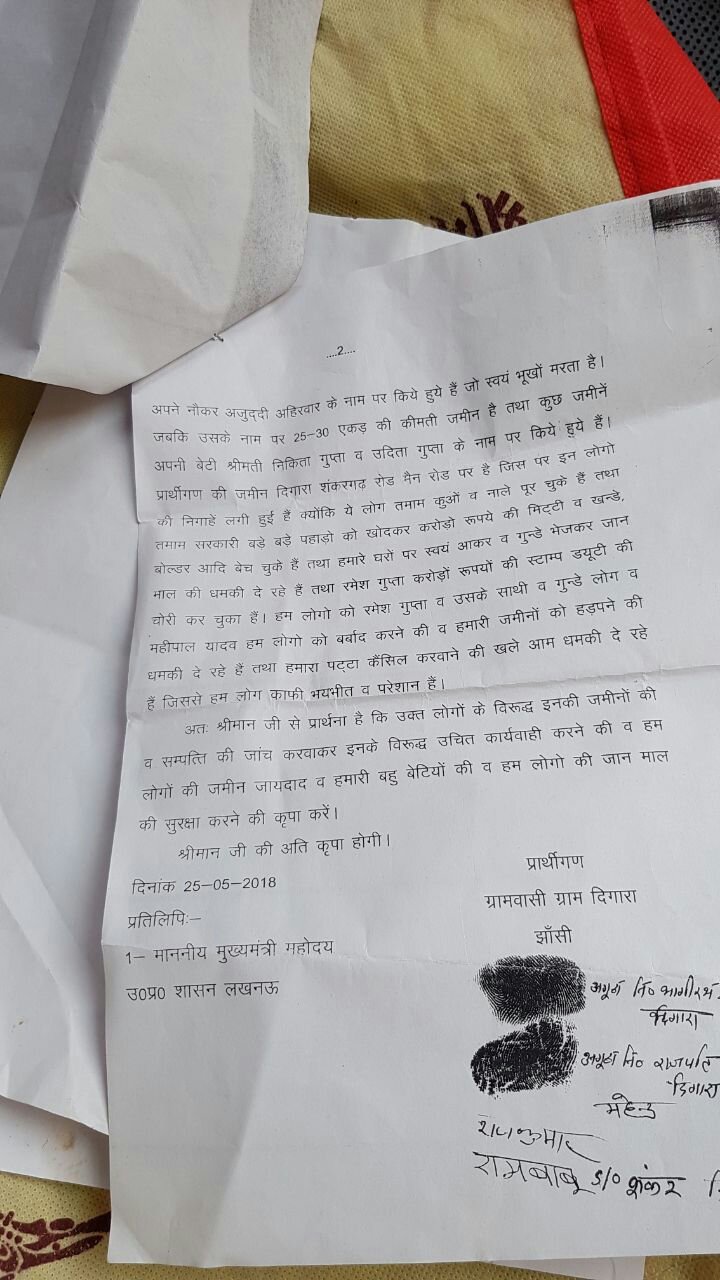 ....2....
अपने नौकर अजुददी अहिरवार के नाम पर किये हुये हैं जो स्वयं भूखों मरता है।
जबकि उसके नाम पर 25-30 एकड़ की कीमती जमीन है तथा कुछ जमीनें
अपनी बेटी श्रीमती निकिता गुप्ता व उदिता गुप्ता के नाम पर किये हुये हैं।
प्रार्थीगण की जमीन दिगारा शंकरगढ़ रोड मैन रोड पर है जिस पर इन लोगो
की निगाहें लगी हुई हैं क्योंकि ये लोग तमाम कुओं व नाले पूर चुके हैं तथा
तमाम सरकारी बड़े बड़े पहाड़ो को खोदकर करोड़ो रूपये की मिट्टी व खन्डे,
बोल्डर आदि बेच चुके हैं तथा हमारे घरों पर स्वयं आकर व गुन्डे भेजकर जान
माल की धमकी दे रहे हैं तथा रमेश गुप्ता करोड़ों रूपयों की स्टाम्प डयूटी की
चोरी कर चुका हैं। हम लोगो को रमेश गुप्ता व उसके साथी व गुन्डे लोग व
महीपाल यादव हम लोगो को बर्बाद करने की व हमारी जमीनों को हड़पने की
धमकी दे रहे हैं तथा हमारा पट्टा कैंसिल करवाने की खले आम धमकी दे रहे
हैं जिससे हम लोग काफी भयभीत व परेशान हैं।
अतः श्रीमान जी से प्रार्थना है कि उक्त लोगों के विरूद्ध इनकी जमीनों की
व सम्पत्ति की जांच करवाकर इनके विरूद्ध उचित कार्यवाही करने की व हम
लोगों की जमीन जायदाद व हमारी बहु बेटियों की व हम लोगो की जान माल
की सुरक्षा करने की कृपा करें।
श्रीमान जी की अति कृपा होगी।
प्रार्थीगण
दिनांक 25-05-2018
ग्रामवासी ग्राम दिगारा
प्रतिलिपिः-
झाँसी
1- माननीय मुख्यमंत्री महोदय
उ0प्र0 शासन लखनऊ
नि० भागीरथ
दिगारा
नि० राजपति
दिगारा
महेन्द्र
राजकुमार
रामबाबू S/o शंकर